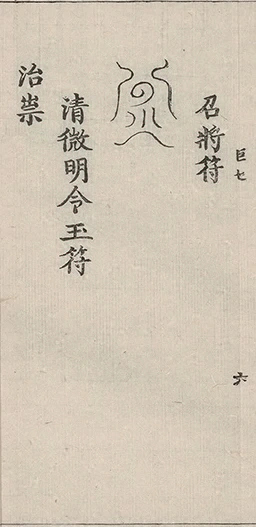 巨七
六
召將符
清微明令玉符
治祟